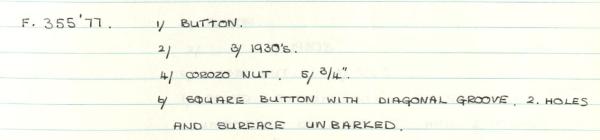 F. 355'77. 1/ BUTTON.
2/ 3/ 1930's.
4/ COROZO NUT. 5/ 3/4".
6/ SQUARE BUTTON WITH DIAGONAL GROOVE. 2. HOLES
AND SURFACE UNBARKED.